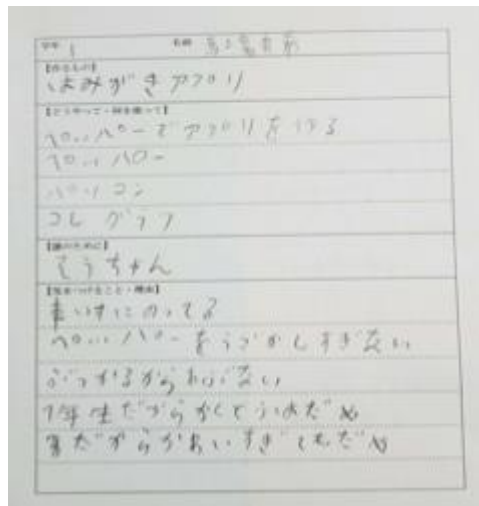 学年 1 名前
【作るもの】
はみがきアプリ
【どうやって・何を使って】
ペッパーでアプリを作る
ペッパー
パソコン
コレグラフ
【誰のために】
そうちゃん
【気をつけること・理由】
車いすにのってる
ペッパーをうごかしすぎない
ぶつかるからあぶない
1年生だからかくて
だからかあいすぎてもだめ